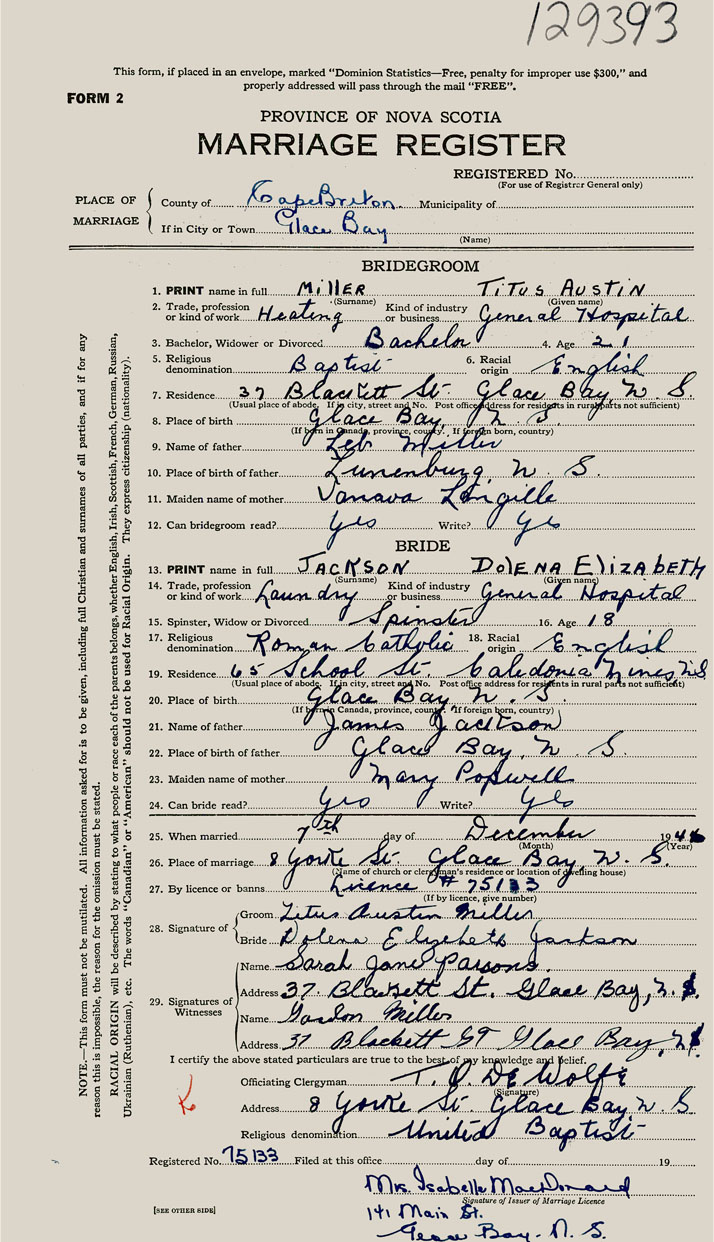 129393
This form, if placed in an envelope, marked "Dominion Statistics—Free, penalty for improper use $300," and
properly addressed will pass through the mail "FREE".
FORM 2
PROVINCE OF NOVA SCOTIA
MARRIAGE REGISTER
REGISTERED No.
(For use of Registrar General only)
PLACE OF MARRIAGE
County of Cape Breton. Municipality of
If in City or Town Glace Bay
(Name)
BRIDEGROOM
1. PRINT name in full MILLER TITUS AUSTIN
(Surname) (Given name)
2. Trade, profession or kind of work Heating Kind of industry or business General Hospital
3. Bachelor, Widower or Divorced Bachelor 4. Age 21
5. Religious denomination Baptist 6. Racial origin English
7. Residence 37 Blackett St. Glace Bay, N. S.
(Usual place of abode. If in city, street and No. Post office address for residents in rural parts not sufficient)
8. Place of birth Glace Bay, N. S.
(If born in Canada, province, county. If foreign born, country)
9. Name of father Miller
10. Place of birth of father Lunenburg, N. S.
11. Maiden name of mother
12. Can bridegroom read? Yes Write? Yes
BRIDE
13. PRINT name in full JACKSON DOLENA ELIZABETH
(Surname) (Given name)
14. Trade, profession or kind of work Laundry Kind of industry or business General Hospital
15. Spinster, Widow or Divorced Spinster 16. Age 18
17. Religious denomination Roman Catholic 18. Racial origin English
19. Residence 65 School St. Caledonia Mines N.S.
(Usual place of abode. If in city, street and No. Post office address for residents in rural parts not sufficient)
20. Place of birth Glace Bay N. S.
(If born in Canada, province, county. If foreign born, country)
21. Name of father James Jackson
22. Place of birth of father Glace Bay, N. S.
23. Maiden name of mother Mary Popwell
24. Can bride read? Yes Write? Yes
25. When married 7th day of December 1946
(Month) (Year)
26. Place of marriage 8 Yorke St. Glace Bay, N. S.
(Name of church or clergyman's residence or location of dwelling house)
27. By licence or banns Licence # 75133
(If by licence, give number)
28. Signature of
Groom Titus Austin Miller
Bride Dolena Elizebeth Jackson
29. Signatures of Witnesses
Name Sarah Jane Parsons.
Address 37. Blackett St. Glace Bay, N. S.
Name Gordon Miller
Address 37 Blackett ST Glace Bay, N.S.
I certify the above stated particulars are true to the best of my knowledge and belief.
Officiating Clergyman T. O. DeWolfe
(Signature)
Address 8 Yorke St. Glace Bay N. S
Religious denomination United Baptist
Registered No. 75133 Filed at this office day of 19
Mrs. Isabelle MacDonald
Signature of Issuer of Marriage Licence
141 Main St.
Glace Bay. N. S.
[SEE OTHER SIDE]
NOTE.—This form must not be mutilated. All information asked for is to be given, including full Christian and surnames of all parties, and if for any
reason this is impossible, the reason for the omission must be stated.
RACIAL ORIGIN will be described by stating to what people or race each of the parents belongs, whether English, Irish, Scottish, French, German, Russian,
Ukrainian (Ruthenian), etc. The words "Canadian" or "American" should not be used for Racial Origin. They express citizenship (nationality).